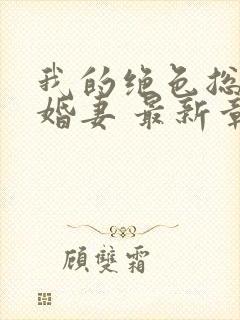 我的绝色总
婚妻 最新章
顾雙霜